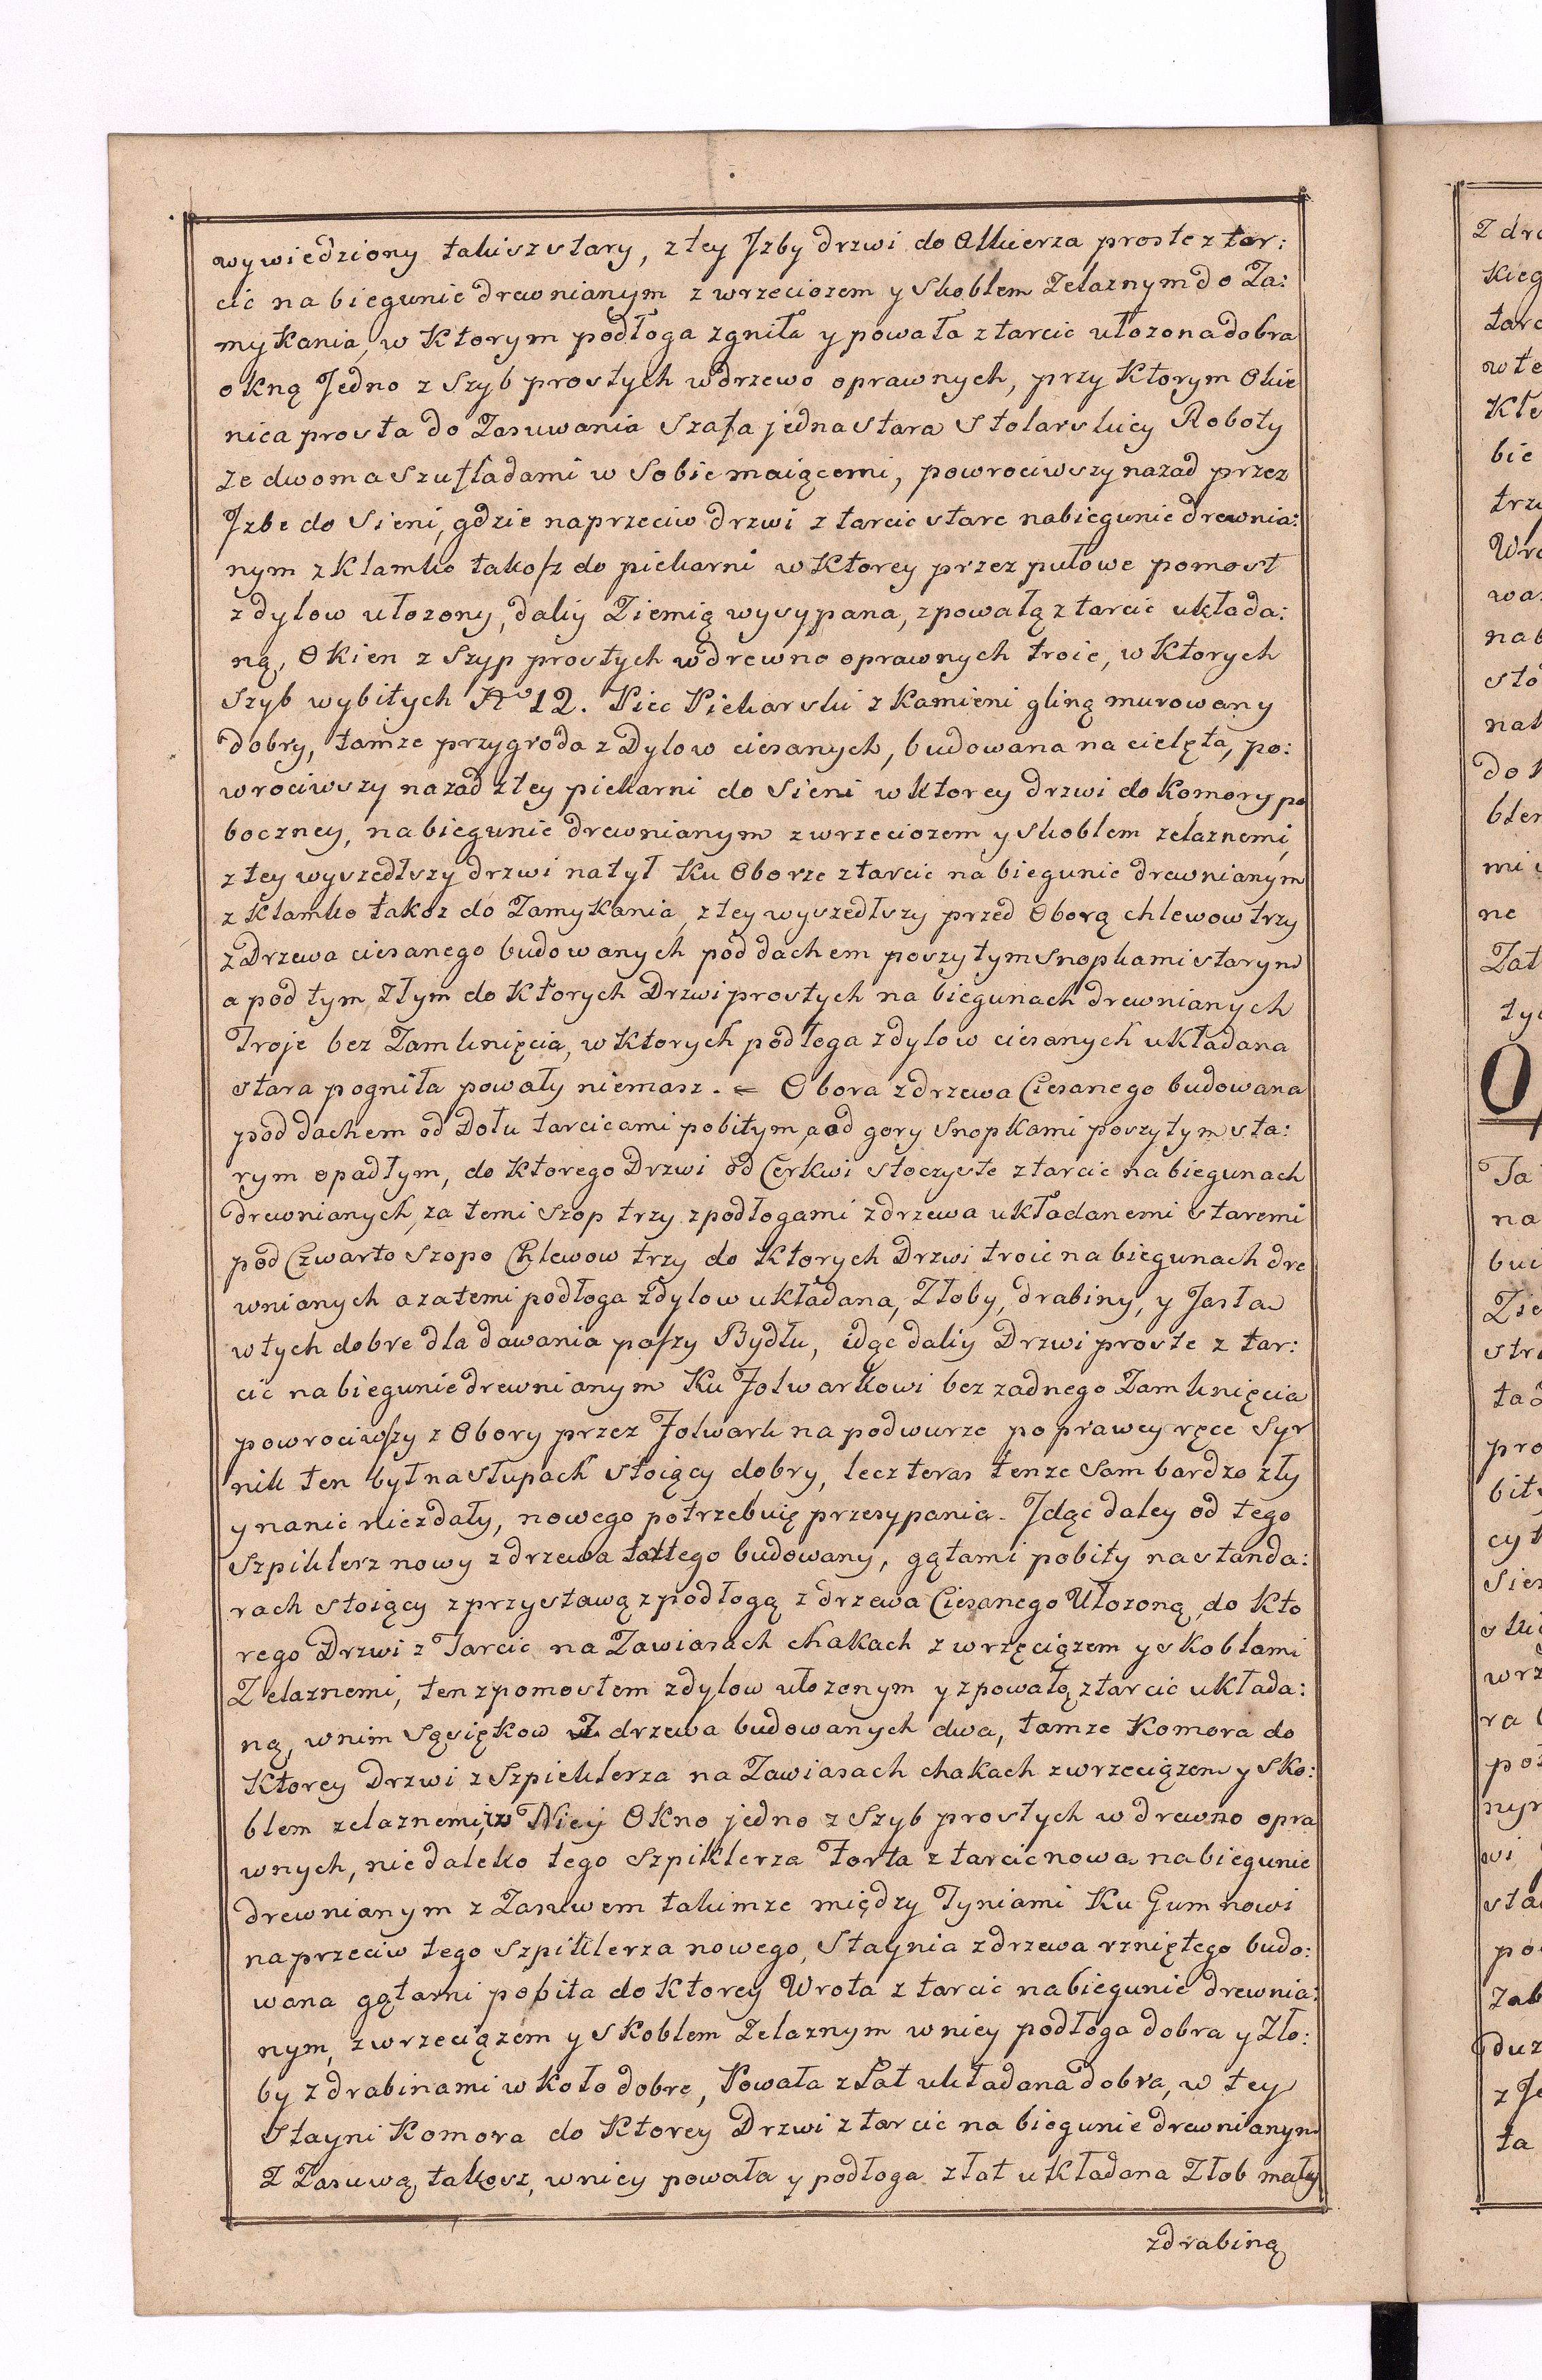 wywiedziony takisz stary, z tey Jzby drzwi do Alkierza proste z tar:
cic na biegunie drewnianym z wrzeciozem y Skoblem Zelaznym do Za:
mykania, w Ktorym podłoga zgniła y powała z tarcic ułozona dobra
okną Jedno z Szyb prostych w drzewo oprawnych, przy Ktorym Okie
nica prosta do Zasuwania Szafa jedna stara Stolarskiey Roboty
ze dwoma szufladami w Sobie maiącemi, powrociwszy nazad przez
Jzbe do Sieni, gdzie naprzeciw drzwi z tarcic stare na biegunie drewnia:
nym z Klamko takosz do piekarni w Ktorey przez pułowe pomost
z dylow ułozony, daliy Ziemią wysypana, z powałą z tarcic układa:
ną, Okien z Szyp prostych w drewno oprawnych troie, w Ktorych
Szyb wybitych No 12. Piec Piekarski z Kamieni gliną murowany
dobry, tamze przygroda z Dylow ciesanych, budowana na cielęta, po:
wrociwszy nazad z tey piekarni do Sieni w Ktorey drzwi do Komory po
boczney, na biegunie drewnianym z wrzeciozem y Skoblem zelaznemi,
z tey wyszedłszy drzwi na tył Ku Oborze z tarcic na biegunie drewnianym
z Klamko takoz do Zamykania, z tey wyszedłszy przed Oborą chlewow trzy
z Drzewa ciesanego budowanych pod dachem poszytym snopkami starym
a pod tym Złym do Ktorych Drzwi prostych na biegunach drewnianych
Troje bez Zamknięcia, w Ktorych podłoga z dylow ciesanych układana
stara pogniła powały niemasz. = Obora z drzewa Ciesanego budowana
pod dachem od Dołu tarcicami pobitym a od gory Snopkami poszytym sta:
rym opadłym, do Ktorego Drzwi od Cerkwi stoczyste z tarcic na biegunach
drewnianych, za temi Szop trzy z podłogami z drzewa układanemi staremi
pod Czwarto Szopo Chlewow trzy do Ktorych Drzwi troie na biegunach dre
wnianych a za temi podłoga z dylow układana, Złoby, drabiny, y Jasła
w tych dobre dla dawania paszy Bydłu, idąc daliy Drzwi proste z tar:
cic na biegunie drewnianym Ku Folwarkowi bez zadnego Zamknięcia
powrociwszy z Obory przez Folwark na podwurze po prawey ręce Syr
nik ten był na słupach stoiący dobry, lecz teras tenze Sam bardzo zły
y nanic niezdały, nowego potrzebuię przesypania. Jdąc daley od tego
Szpiklerz nowy z drzewa tartego budowany, gątami pobity na standa:
rach stoiący z przystawą z podłogą z drzewa Ciesanego Ułozoną, do Kto
rego Drzwi z Tarcic na Zawiasach chakach z wrzęciązem y skoblami
Zelaznemi, ten z pomostem z dylow ułozonym y z powałą z tarcic układa:
ną, w nim Sąsięków z drzewa budowanych dwa, tamze Komora do
Ktorey Drzwi z Szpieklerza na Zawiasach chakach z wrzeciązem y Sko:
blem zelaznemi, w Niey Okno jedno z Szyb prostych w drewno opra
wnych, nie daleko tego Szpiklerza Forta z tarcic nowa na biegunie
drewnianym z Zasuwem takimze między Tyniami Ku Gumnowi
naprzeciw tego Szpiklerza nowego, Staynia z drzewa rzniętego budo:
wana gątami pobita do Ktorey Wrota z tarcic na biegunie drewnia:
nym, z wrzeciązem y Skoblem Zelaznym w niey podłoga dobra y Zło:
by z drabinami w Koło dobre, Powała z Łat układana dobra, w tey
Stayni Komora do Ktorey Drzwi z tarcic na biegunie drewnianym
Z Zasuwą, takosz, w niey powała y podłoga z łat układana Złob mały
z drabiną